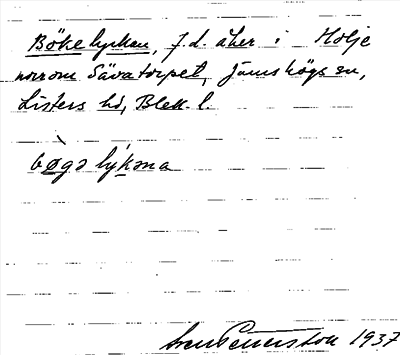 Bökelyckan, f.d. åker i Holje
norr om Sävatorpet, Jämshögs sn,
Listers hd, Blek. l.
bø̀gə lýkəna
1937